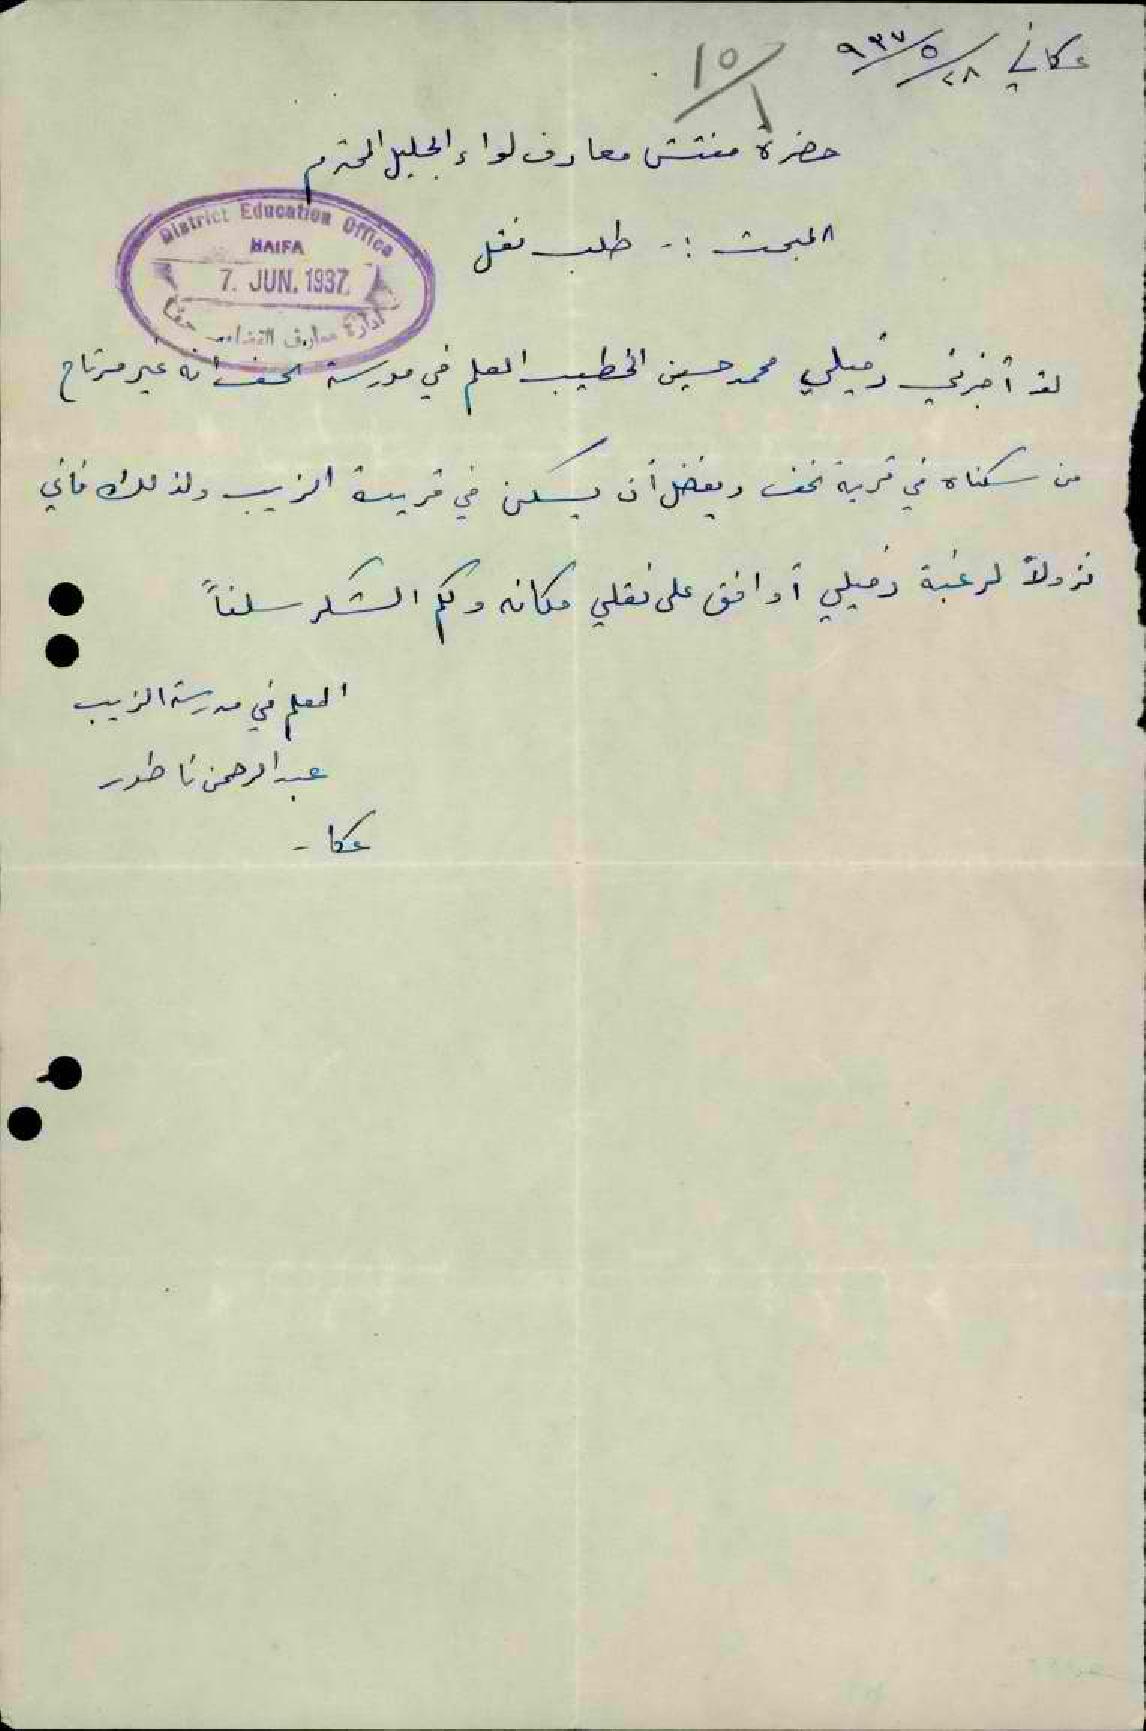 عكا في ٢٨/٥/٩٣٧
١٥/١
حضرة مفتش معارف لواء الجليل المحترم
المبحث :- طلب نقل
District Education Office
HAIFA
7. JUN. 1937
ادارة معارف القضاء حيفا
لقد أخبرني زميلي محمد حسين الخطيب المعلم في مدرسة نحف أنه غير مرتاح
من سكناه في قرية نحف ويفضل أن يسكن في قرية الزيب ولذلك فاني
نزولاً لرغبة زميلي أوافق على نقلي مكانه ولكم الشكر سلفاً
المعلم في مدرسة الزيب
عبد الرحمن ناطور
عكا -